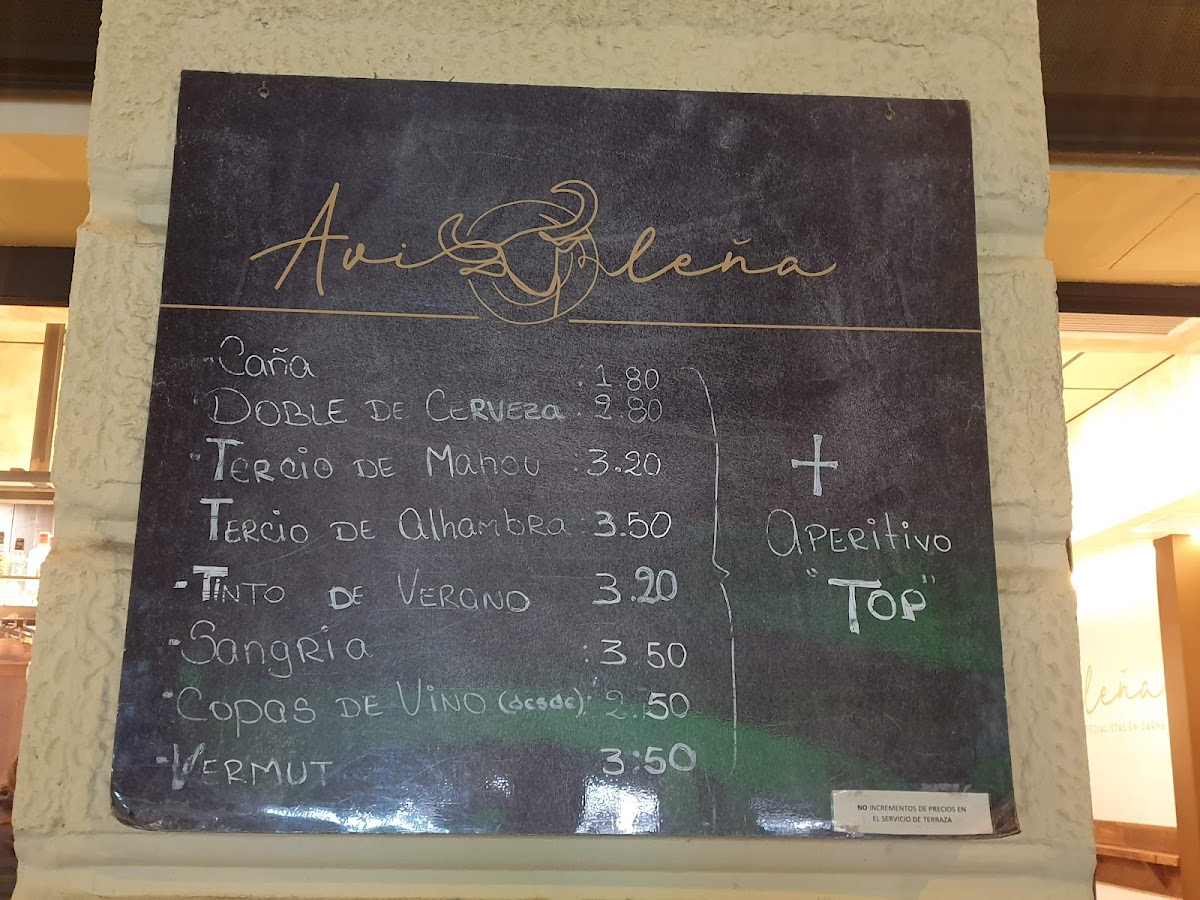 Avileña
- Caña : 1.80
DOBLE DE CERVEZA : 2.80
- TERCIO DE Mahou : 3.20
TERCIO DE Alhambra : 3.50
- TINTO DE VERANO 3.20
- SangRia : 3.50
- COPAS DE VINO (desde): 2.50
- VERMUT 3:50
+
APERitivo
"TOP"
NO INCREMENTOS DE PRECIOS EN
EL SERVICIO DE TERRAZA
leña
ECIALISTAS EN CARNE